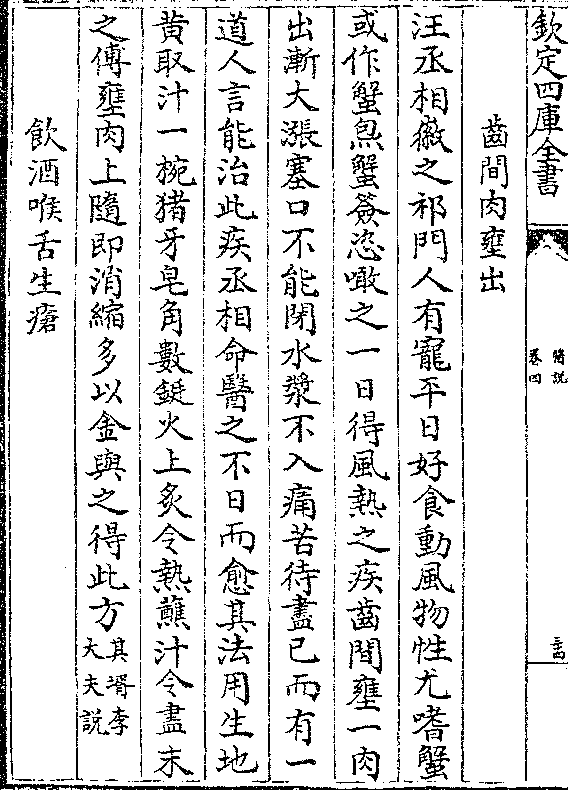 欽定四庫全書
醫說
卷四
三四
齒間肉壅出
汪丞相徽之祁門人有寵平日好食動風物性尤嗜蟹
或作蟹炰蟹簽恣噉之一日得風熱之疾齒間壅一肉
出漸大漲塞口不能閉水漿不入痛苦待盡已而有一
道人言能治此疾丞相命醫之不日而愈其法用生地
黄取汁一椀猪牙皂角數鋌火上炙令熱蘸汁令盡末
之傅壅肉上隨即消縮多以金與之得此方其壻李
大夫說
飲酒喉舌生瘡